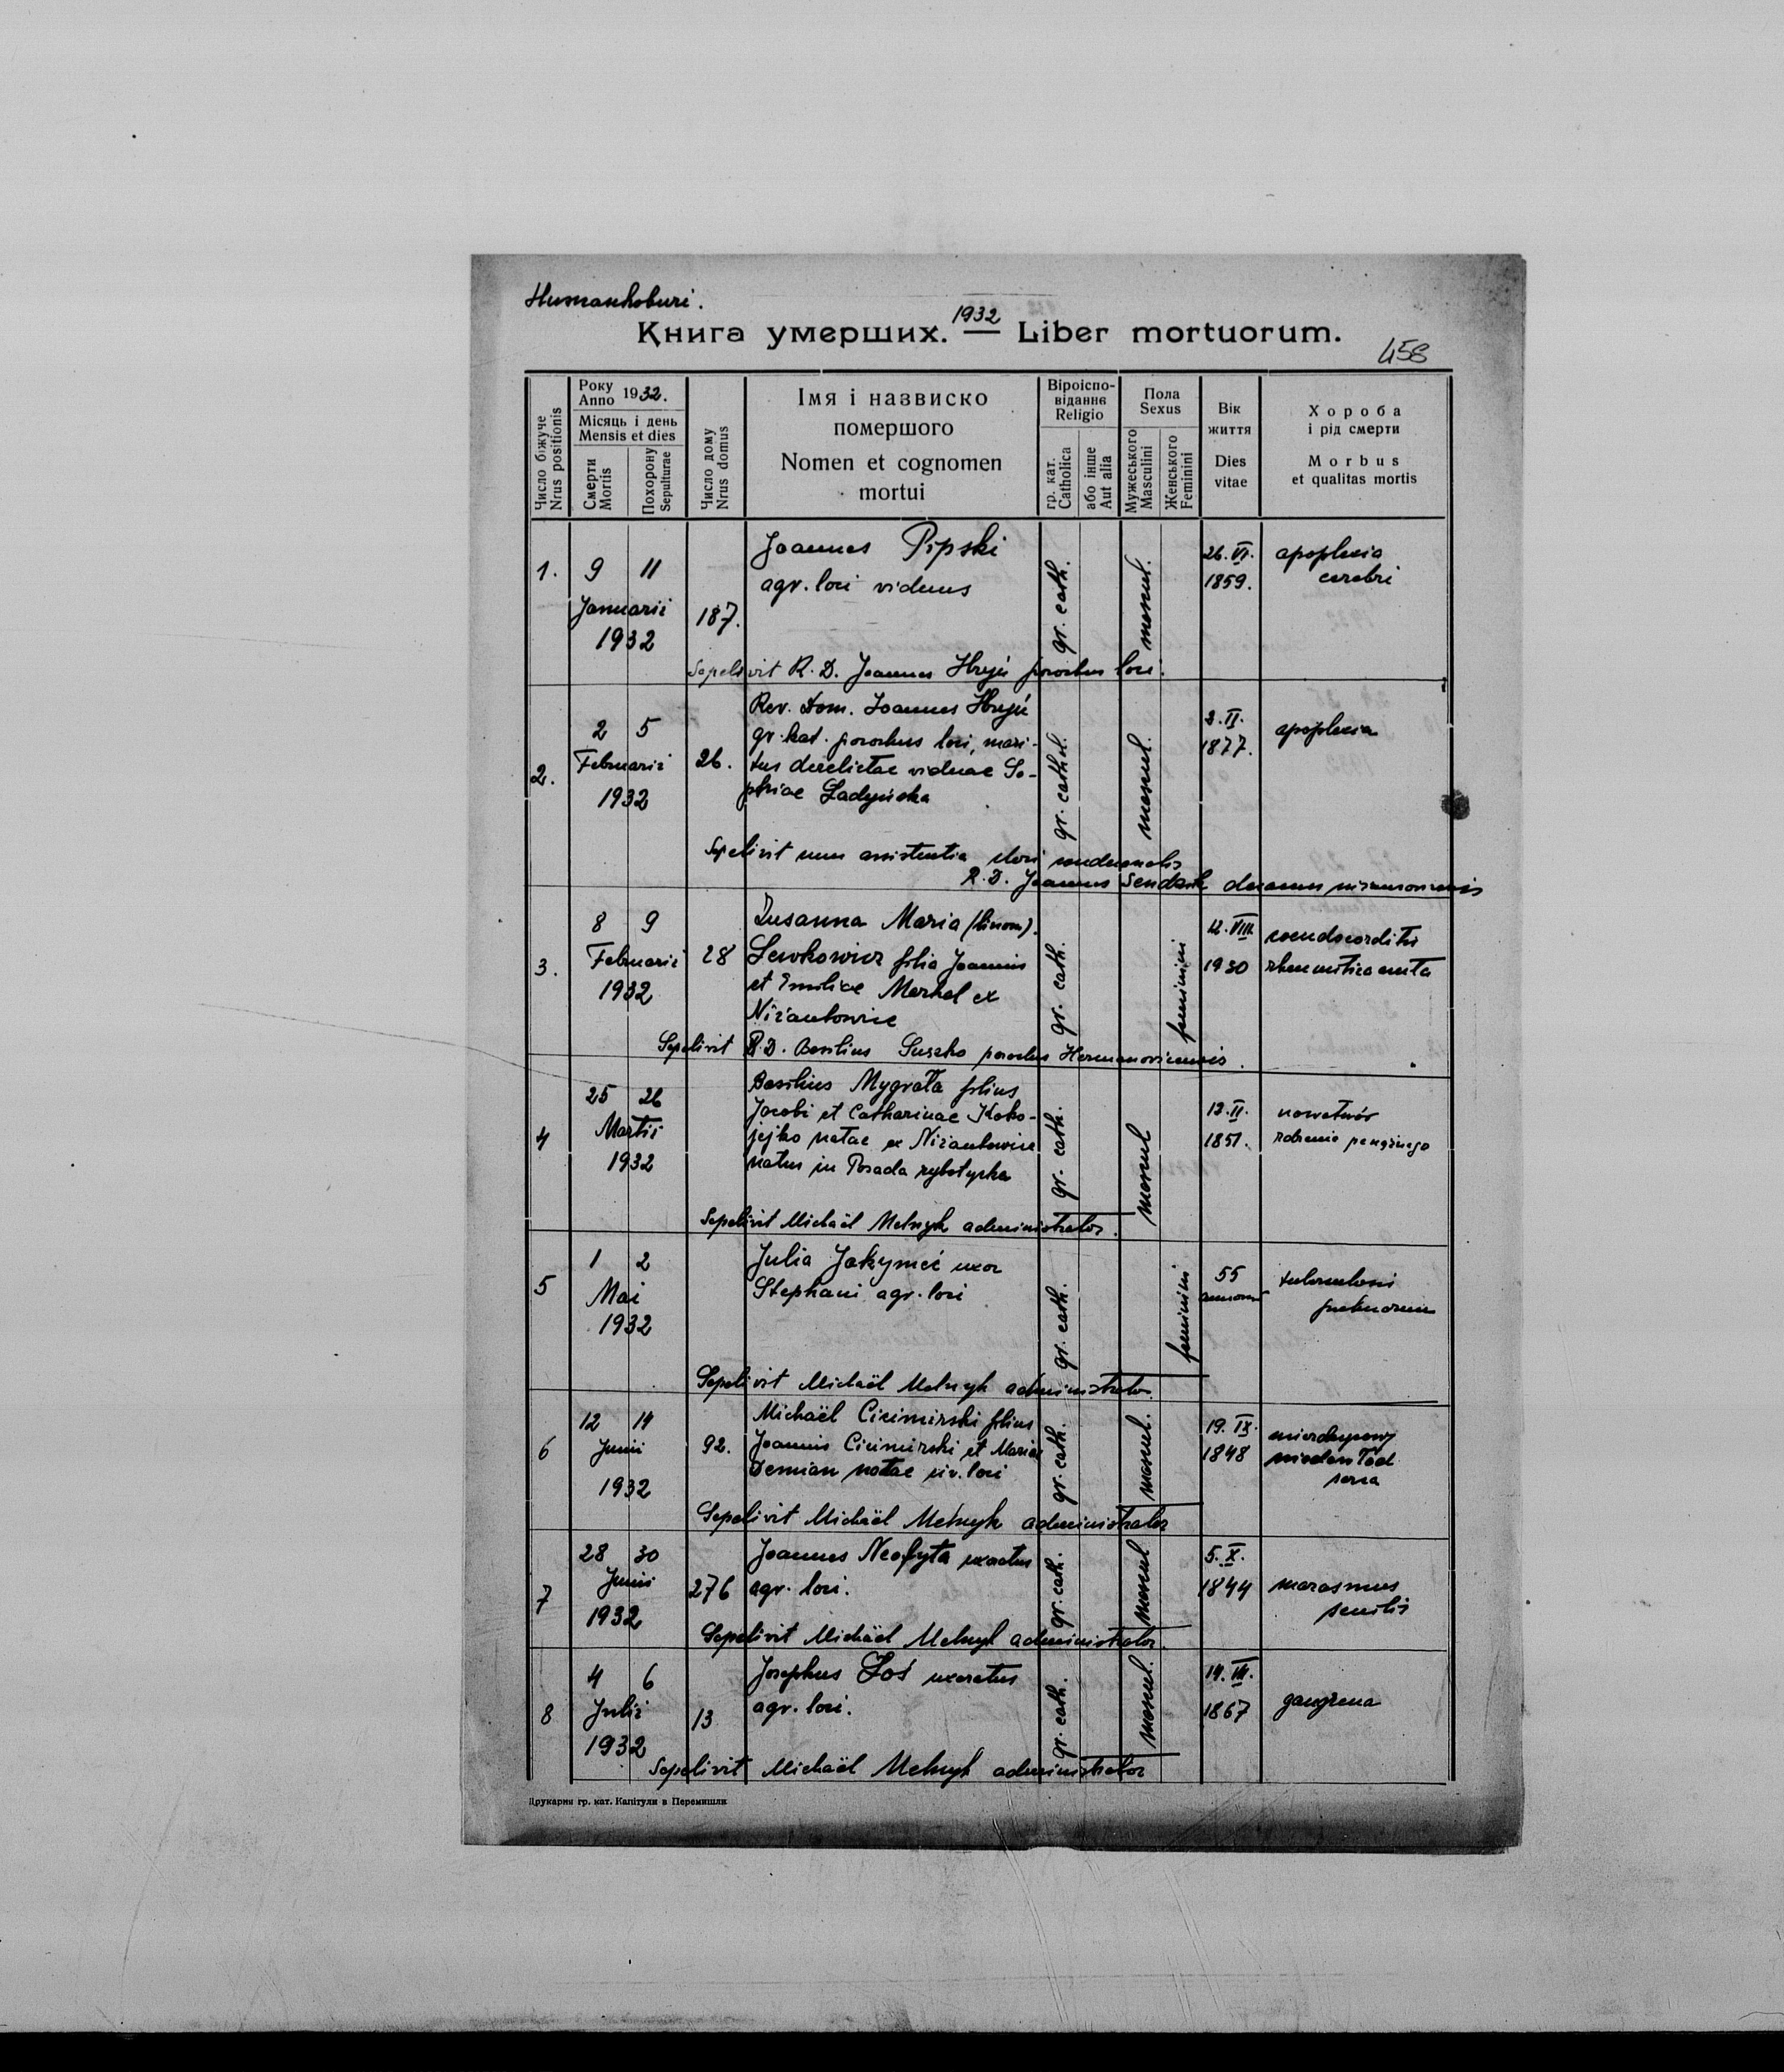 1932
Книга умерших. — Liber mortuorum.
458
Число біжуче
Nrus positionis
Року
Anno 1932.
Місяць і день
Mensis et dies
Смерти
Mortis
Похорону
Sepulturae
Число дому
Nrus domus
Імя і назвиско
помершого
Nomen et cognomen
mortui
Віроіспо-
відання
Religio
гр. кат.
Catholica
або інше
Aut alia
Пола
Sexus
Мужеського
Masculini
Женського
Feminini
Вік
життя
Dies
vitae
Хороба
і рід смерти
Morbus
et qualitas mortis
1. 9 11 Januarii 1932 187.
Joannes Pipski
agr. loci viduus
gr. cath. mascul.
26. VI. 1859.
apoplexia
cerebri
Sepelivit R. D. Joannes parochus loci.
2. 2 5 Februarii 1932 26.
Rev. Dom. Joannes
gr. kat. parochus loci, mari-
tus derelictae viduae So-
phiae Ładyńska
gr. cathol. mascul.
2. II. 1877.
apoplexia
Sepelivit cum assistentia
R. D. Joannes
3. 8 9 Februarii 1932 28
Zusanna Maria (binom).
Lewkowicz filia Joannis
et Emiliae ex
Niżankowice
gr. cath. feminini
12. VIII. 1930
Sepelivit R. D. Basilius Suszko parochus
4 25 26 Martii 1932
Basilius Mygrała filius
Jacobi et Catharinae Koko-
jejko natae ex Niżankowice
natus in Posada rybotycka
gr. cath. mascul
1851.
nowotwór
Sepelivit Michaël Melnyk administrator.
5 1 2 Mai 1932
Julia Jakymeć uxor
Stephani agr. loci
gr. cath. feminini
55 annorum
tuberculosis
Sepelivit Michaël Melnyk administrator.
6 12 14 Junii 1932 92.
Michaël Cicimirski filius
Joannis Cicimirski et Mariae
Demian natae loci
gr. cath. mascul.
19. IX. 1848
serca
Sepelivit Michaël Melnyk administrator
7 28 30 Junii 1932 276
Joannes Neofyta uxoratus
agr. loci.
gr. cath. mascul
5. X. 1844
marasmus
senilis
Sepelivit Michaël Melnyk administrator.
8 4 6 Julii 1932 13
Josephus Łoś uxoratus
agr. loci.
gr. cath. mascul.
1867
gangrena
Sepelivit Michaël Melnyk administrator
Друкарня гр. кат. Капітули в Перемишли